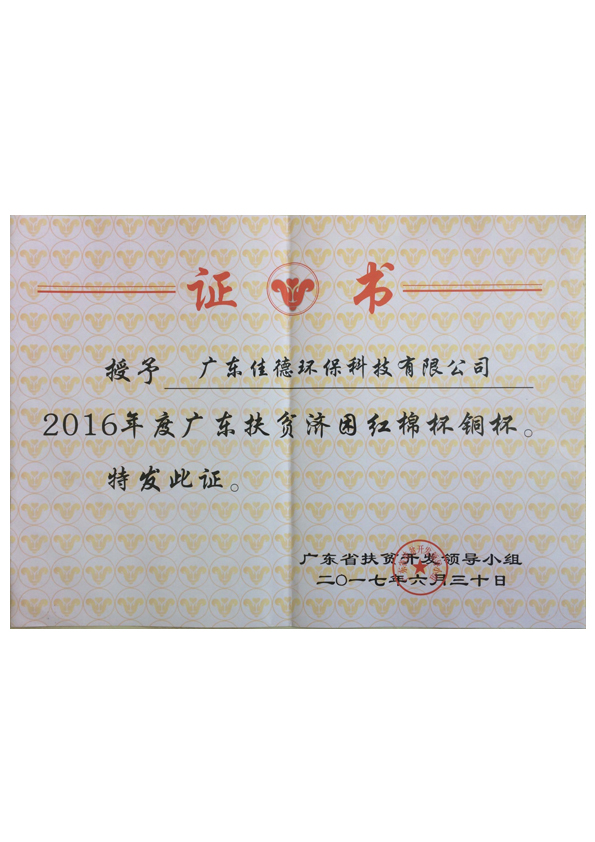 证 书
授予 广东佳德环保科技有限公司
2016年度广东扶贫济困红棉杯铜杯。
特发此证。
广东省扶贫开发领导小组
二〇一七年六月三十日